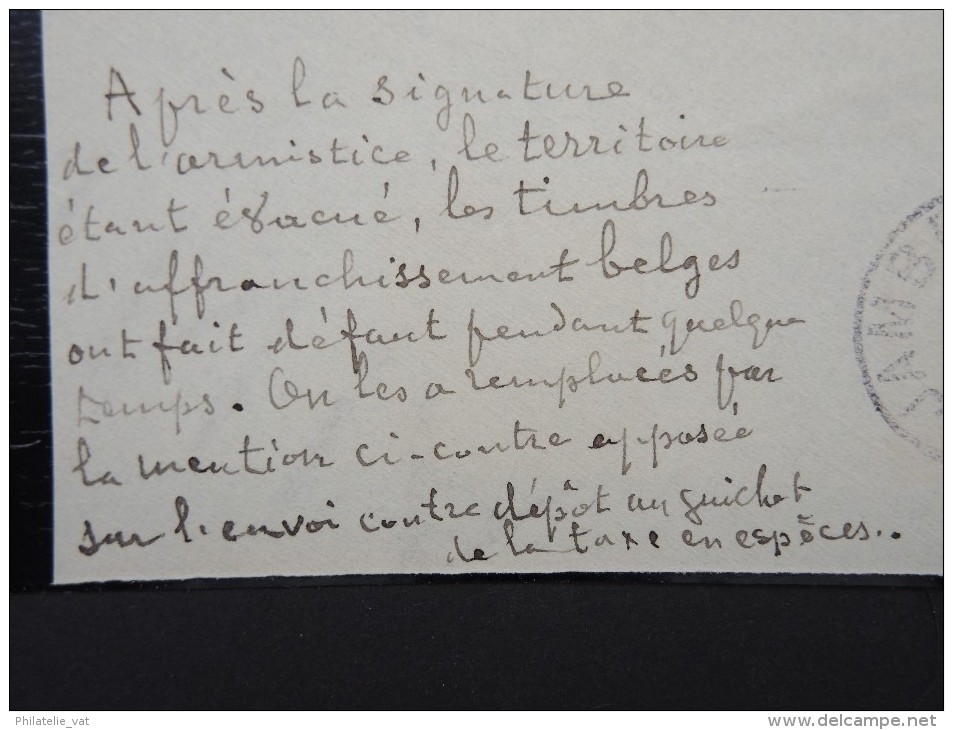 Après la signature
de l'armistice, le territoire
étant évacué, les timbres
d'affranchissement belges
ont fait défaut pendant quelque
temps. On les a remplacés par
la mention ci-contre apposée
sur l'envoi contre dépôt au guichet
de la taxe en espèces..
JAMB
Philatelie_vat
www.delcampe.net